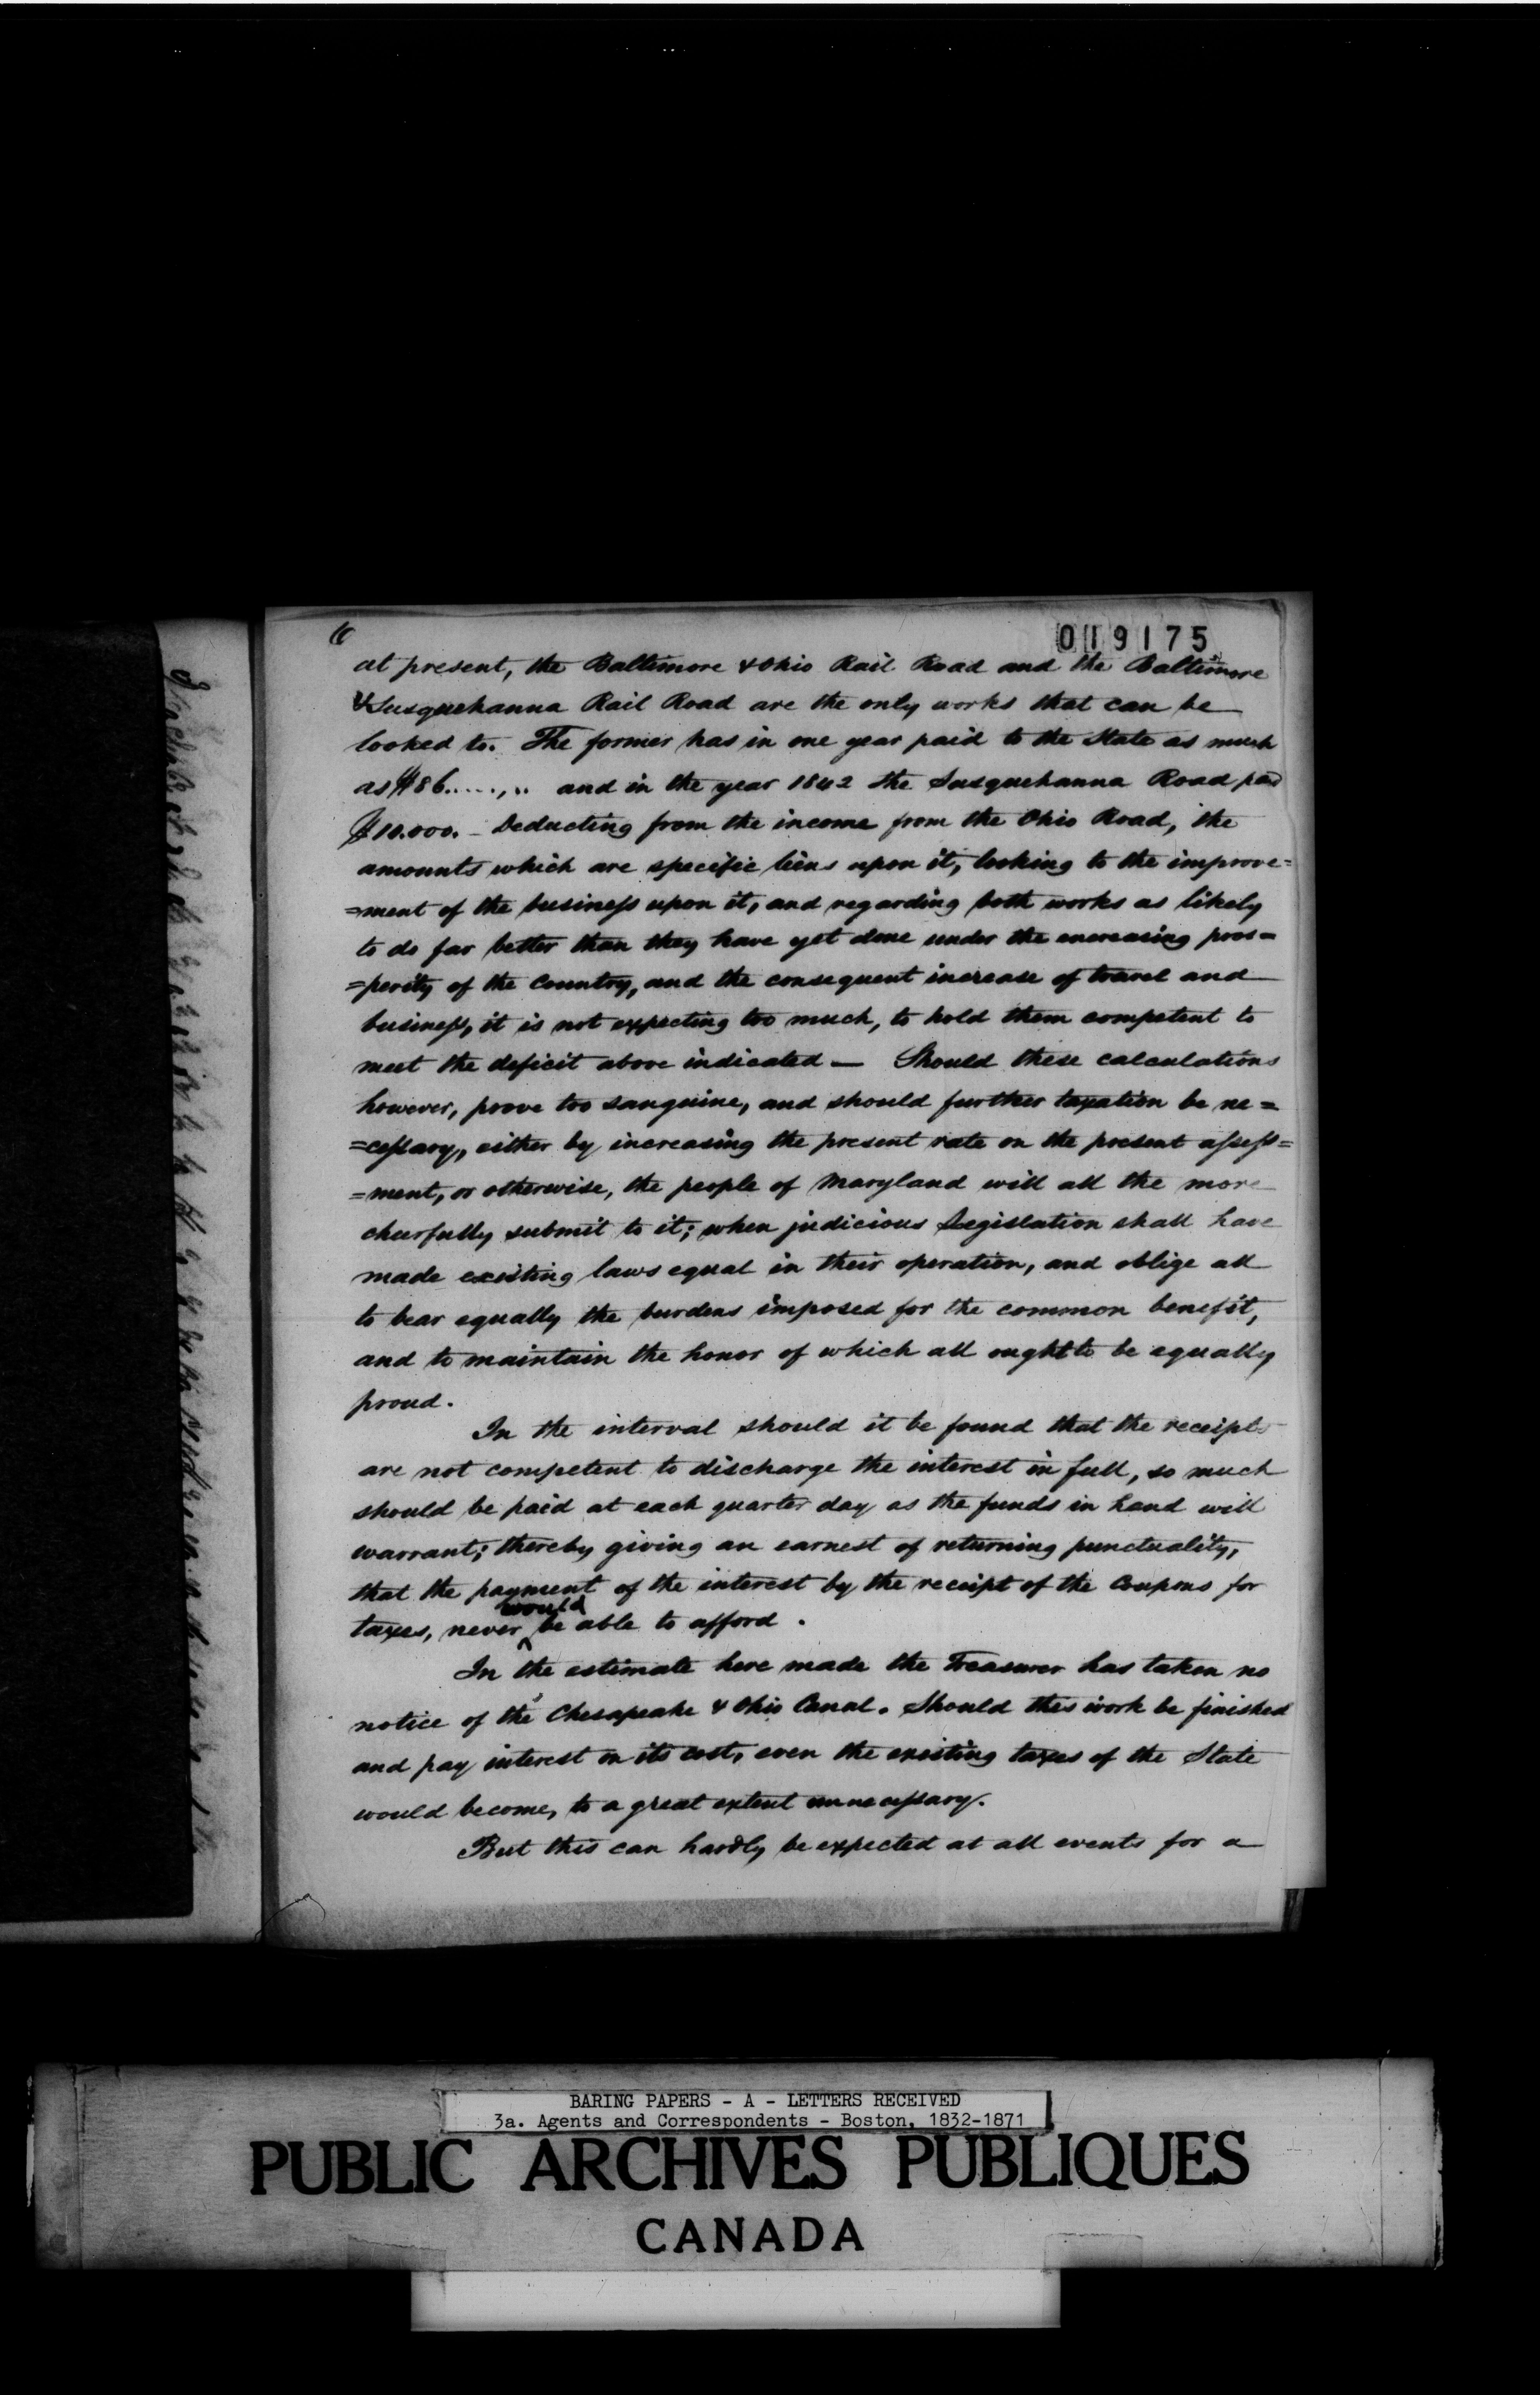 6
019175
at present, the Baltimore & Ohio Rail Road and the Baltimore
& Susquehanna Rail Road are the only works that can be
looked to. The former has in one year paid to the State as much
as $86....,.. and in the year 1842 the Susquehanna Road paid
$10.000. – Deducting from the income from the Ohio Road, the
amounts which are specific liens upon it, looking to the improve=
=ment of the business upon it, and regarding both works as likely
to do far better than they have yet done under the encreasing pros=
=perity of the Country, and the consequent increase of travel and
business, it is not expecting too much, to hold them competent to
meet the deficit above indicated — Should these calculations
however, prove too sanguine, and should further taxation be ne=
=cessary, either by increasing the present rate on the present assess=
=ment, or otherwise, the people of Maryland will all the more
cheerfully submit to it; when judicious Legislation shall have
made existing laws equal in their operation, and oblige all
to bear equally the burdens imposed for the common benefit,
and to maintain the honor of which all ought to be equally
proud.
In the interval should it be found that the receipts
are not competent to discharge the interest in full, so much
should be paid at each quarter day as the funds in hand will
warrant; thereby giving an earnest of returning punctuality,
that the payment of the interest by the receipt of the Coupons for
taxes, never would be able to afford.
In the estimate here made the Treasurer has taken no
notice of the Chesapeake & Ohio Canal. Should this work be finished
and pay interest on its cost, even the existing taxes of the State
would become, to a great extent unnecessary.
But this can hardly be expected at all events for a
BARING PAPERS - A - LETTERS RECEIVED
3a. Agents and Correspondents - Boston, 1832-1871
PUBLIC ARCHIVES PUBLIQUES
CANADA